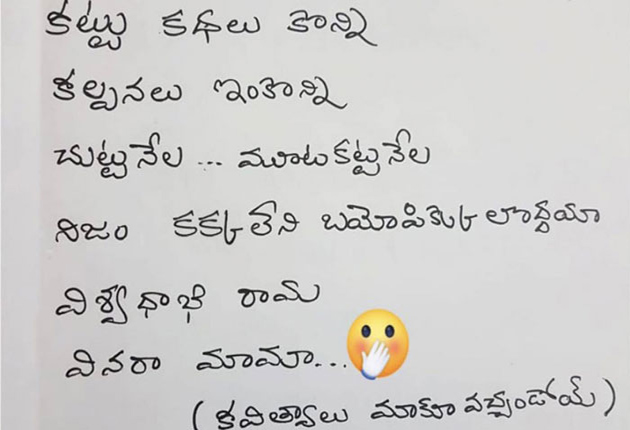 కట్టు కథలు కొన్ని
కల్పనలు ఇంకొన్ని
చుట్టునేల ... మూటకట్టనేల
నిజం కక్కలేని బయోపిక్కు లొద్దయా
విశ్వధాభి రామ
వినరా మామా...
(కవిత్వాలు మాకూ వచ్చండోయ్)